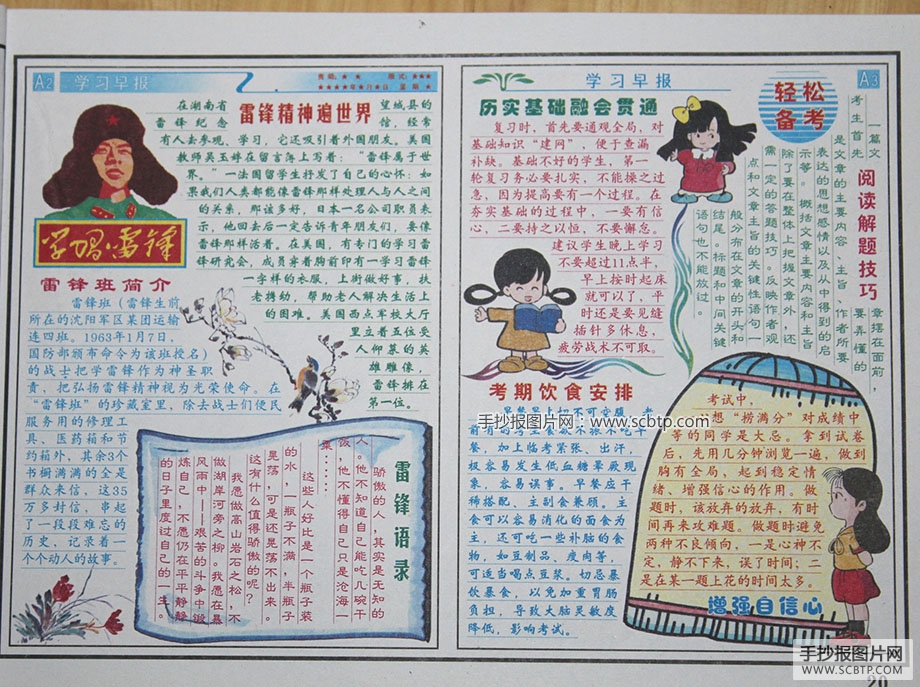 A2
学习早报
责编：★ ★ 版式：★★★
★★★★年★月★日 星期★
雷锋精神遍世界
在湖南省 望城县的
雷锋纪念 信，经常
有人去参观，学习，它还吸引着外国朋友。美国
教师吴玉婷在留言簿上写着：“雷锋属于世
界。”一法国留学生抒发了自己的心怀：如
果我们人类都能像雷锋那样处理人与人之间
的关系，那该多好，日本一名公司职员表
示，他回去后一定告诉青年朋友们，要像
雷锋那样活着。在美国，有专门的学习雷
锋研究会，成员穿着胸前印有一学习雷锋
一字样的衣服，上街做好事，扶
老携幼，帮助老人解决生活上
的困难。美国西点军校大厅
里立着五位受
人仰慕的英
雄雕像，
雷锋排在
第一位。
学习雷锋
雷锋班简介
雷锋班（雷锋生前
所在的沈阳军区某团运输
连四班。1963年1月7日，
国防部颁布命令为该班授名）
的战士把学雷锋作为神圣职
责，把弘扬雷锋精神视为光荣使命。在
“雷锋班”的珍藏室里，除去战士们使民
服务用的修理工
具、医药箱和节
约箱外，其余3个
书橱满满的全是
群众来信，这35
万多封信，串起
了一段段难忘的
历史，记录着一
个个动人的故事。
雷锋语录
骄傲的人，其实是无知的
人。他不知道自己能吃几碗干
饭，他不懂得自己只是沧海一
粟……
这些人好比是一个瓶子装
的水，一瓶子不满，半瓶子
晃荡，可是还是晃荡不出来。
这有什么值得骄傲的呢？
我愿做高山岩石之松，不
做湖岸河旁之柳。我愿在暴
风雨中——艰苦的斗争中锻
炼自己，不愿仍在平平静静
的日子里度过自己的一生
学习早报
A3
历实基础融会贯通
复习时，首先要通观全局，对
基础知识“建网”，便于查漏
补缺。基础不好的学生，第一
轮复习务必要扎实，不能操之过
急，因为提高要有一个过程。在
夯实基础的过程中，一要有信
心，二要持之以恒，不要懈怠。
建议学生晚上学习
不要超过11点半，
早上按时起床
就可以了，平
时还是要见缝
插针多休息，
疲劳战术不可取。
轻松
备考
阅读解题技巧
一篇文 章摆在面前，
考生首先 要弄懂的
是文章的主要内容、主旨，作者所要
表达的思想感情以及从中得到的启
示等。概括文章主要内容和主旨
除了要在整体上把握文章外，还
需一定的答题技巧。反映作者观
点和文章主旨的关键性语句一
般分布在文章的开头和
结尾。标题和中间关键
语句也不能放过。
考期饮食安排
手抄报图片网：www.scbtp.com
餐，加上临考紧张、出汗，
极容易发生低血糖晕厥现
象，容易误事。早餐应干
稀搭配、主副食兼顾。主
食可以容易消化的面食为
主，还可吃一些补脑的食
物，如豆制品、瘦肉等，
可适当喝点豆浆。切忌暴
饮暴食，以免加重胃肠
负担，导致大脑灵敏度
降低，影响考试。
考试中，
想“捞满分”对成绩中
等的同学是大忌。拿到试卷
后，先用几分钟浏览一遍，做到
胸有全局，起到稳定情
绪、增强信心的作用。做
题时，该放弃的放弃，有时
间再来攻难题。做题时避免
两种不良倾向，一是心神不
定，静不下来，误了时间；二
是在某一题上花的时间太多。
增强自信心
手抄报图片网
WWW.SCBTP.COM
20